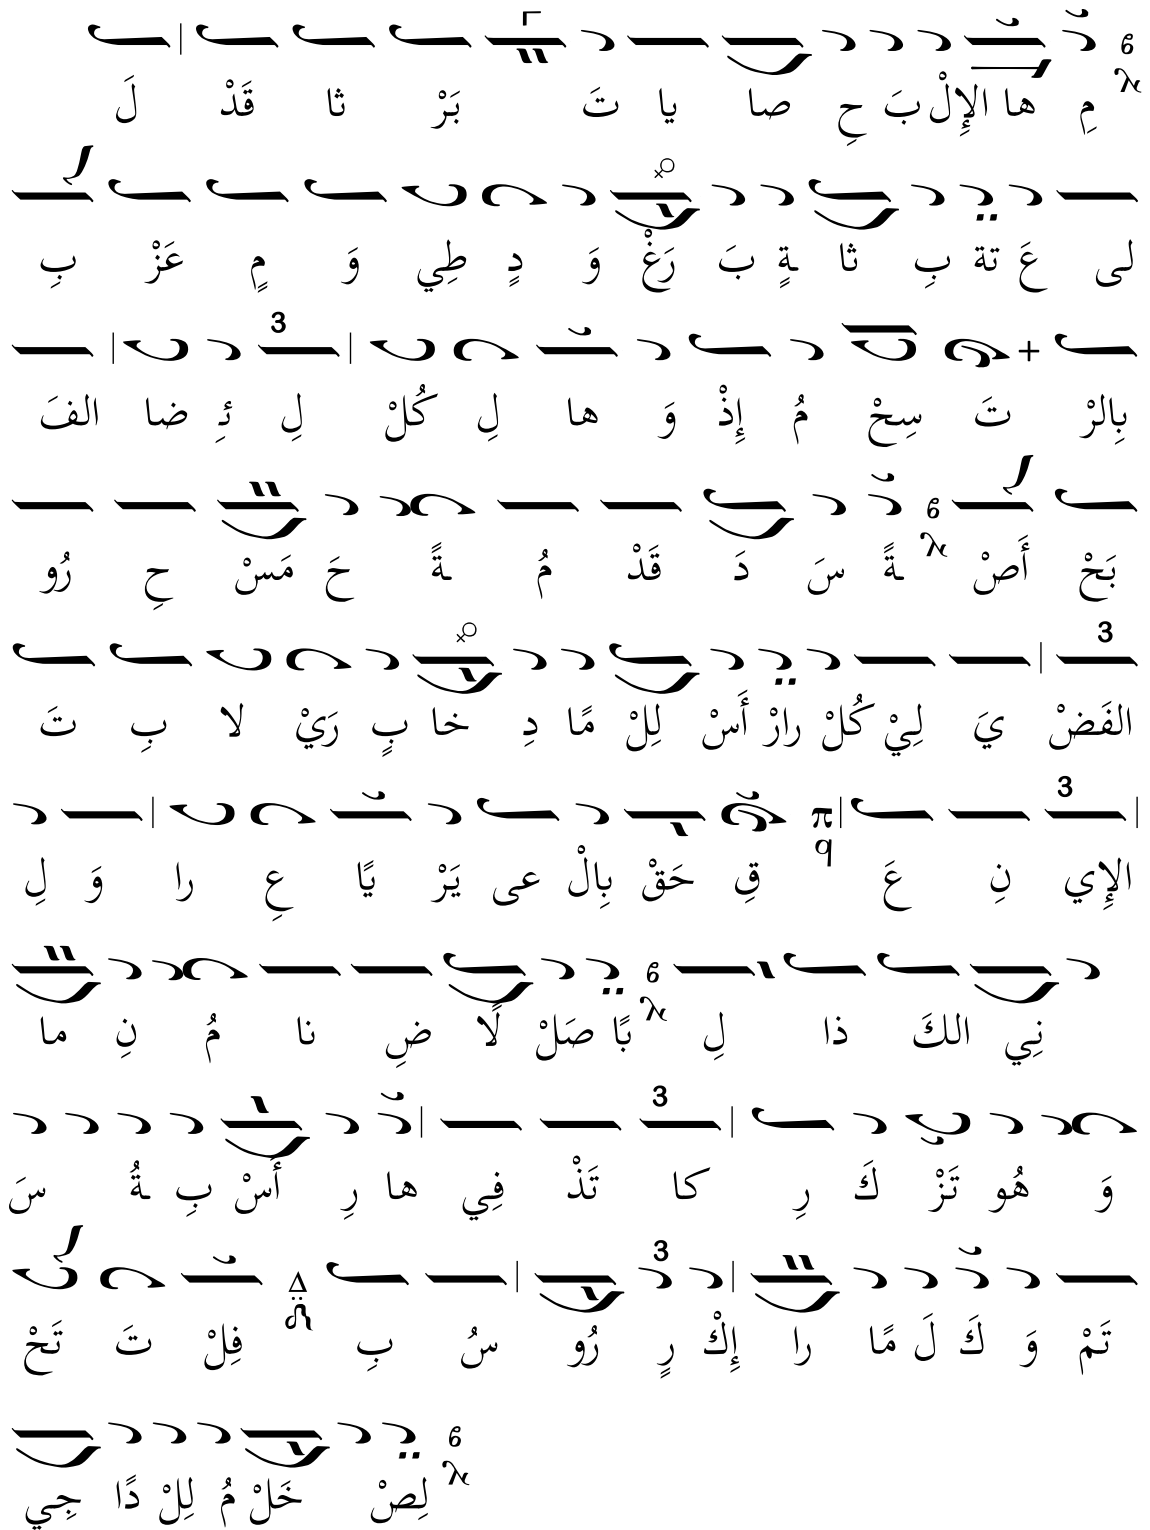 لَ قَدْ ثا بَرْ تَ يا صا حِ بَ الإِلْ ها مِ
بِ عَزْ مٍ وَ طِي دٍ وَ رَغْ بَ ـةٍ ثا بِ تة عَ لى
الفَ ضا ئِـ لِ كُلْ لِ ها وَ إِذْ مُ سِحْ تَ بِالرْ
رُو حِ مَسْ حَ ـةً مُ قَدْ دَ سَ ـةً أَصْ بَحْ
تَ بِ لا رَيْ بٍ خا دِ مًا لِلْ أَسْ رارْ كُلْ لِيْ يَ الفَضْ
لِ وَ را عِ يًا يَرْ عى بِالْ حَقْ قِ عَ نِ الإِي
ما نِ مُ نا ضِ لًا صَلْ بًا لِ ذا الكَ نِي
سَ ـةُ بِ أَسْ رِ ها فِي تَذْ كا رِ كَ تَزْ هُو وَ
تَحْ تَ فِلْ بِ سُ رُو رٍ إِكْ را مًا لَ كَ وَ تَمْ
جِي دًا لِلْ مُ خَلْ لِصْ